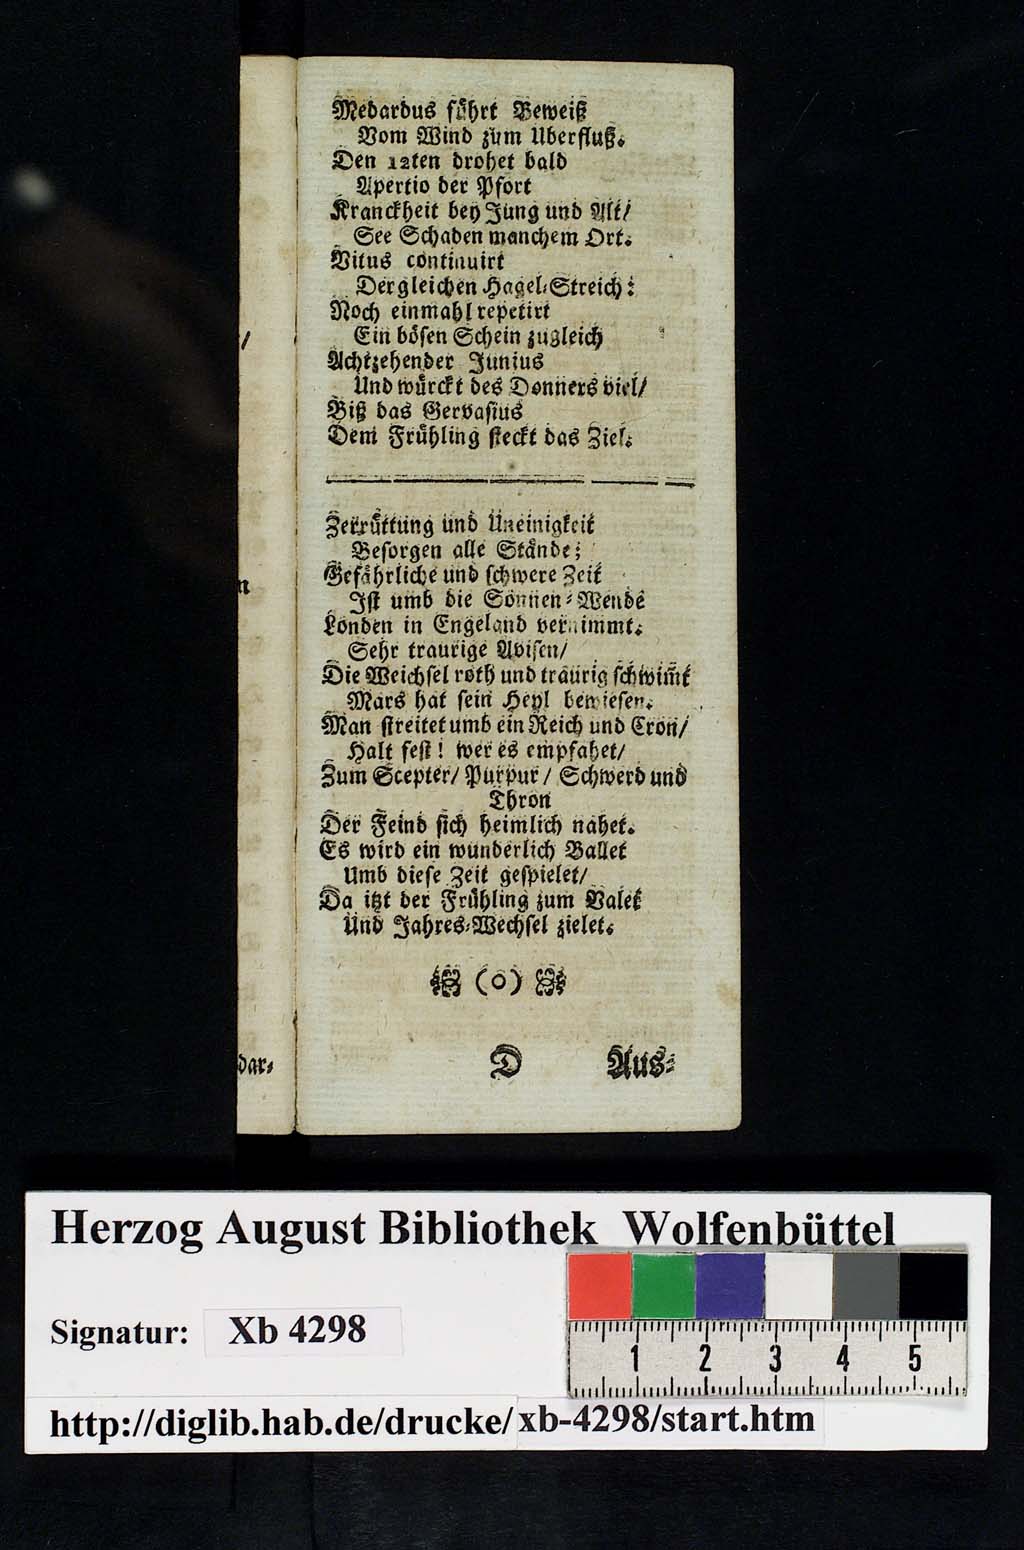 Medardus führt Beweiß
Vom Wind zum Uberfluß.
Den 12ten drohet bald
Apertio der Pfort
Kranckheit bey Jung und Alt/
See Schaden manchem Ort.
Vitus continuirt
Dergleichen Hagel-Streich:
Noch einmahl repetirt
Ein bösen Schein zugleich
Achtzehender Junius
Und würckt des Donners viel/
Biß das Gervasius
Dem Frühling steckt das Ziel.
Zerrüttung und Uneinigkeit
Besorgen alle Stände;
Gefährliche und schwere Zeit
Ist umb die Sonnen-Wende
Londen in Engeland vernimmt.
Sehr traurige Avisen/
Die Weichsel roth und traurig schwim̄t
Mars hat sein Heyl bewiesen.
Man streitet umb ein Reich und Cron/
Halt fest! wer es empfahet/
Zum Scepter/ Purpur/ Schwerd und
Thron
Der Feind sich heimlich nahet.
Es wird ein wunderlich Ballet
Umb diese Zeit gespielet/
Da itzt der Frühling zum Valet
Und Jahres-Wechsel zielet.
(o)
dar-
D Aus-
Herzog August Bibliothek Wolfenbüttel
Signatur: Xb 4298
1 2 3 4 5
http://diglib.hab.de/drucke/xb-4298/start.htm